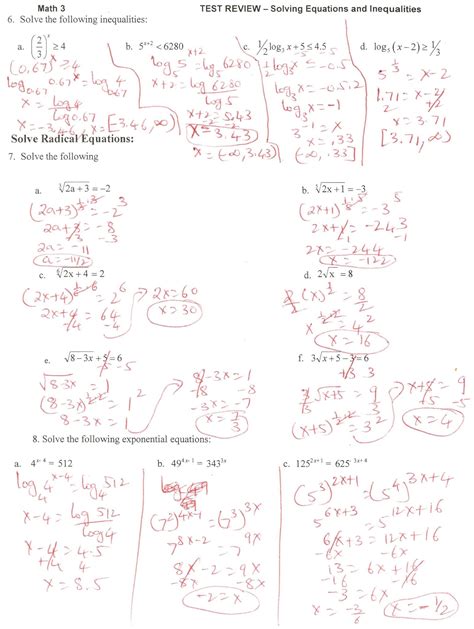 Math 3 TEST REVIEW – Solving Equations and Inequalities
6. Solve the following inequalities:
a. (2/3)^x ≥ 4 b. 5^(x+2) < 6280 c. 1/2 log₃ x + 5 ≤ 4.5 d. log₅ (x − 2) ≥ 1/3
(0.67)^x ≥ 4
log₀.₆₇ 0.67^x = log₀.₆₇ 4
x = log 4 / log 0.67
x = -3.46, x = [3.46, ∞)
log₅ 5^(x+2) = log₅ 6280
x+2 = log 6280 / log 5
x+2 = 5.43
-2 -2
x = 3.43
x = (-∞, 3.43)
1/2 log₃ x ≤ -0.5
log₃ x = -0.5 · 2
log₃ x = -1
3^-1 = x
x = .33
(-∞, .33]
5^(1/3) = x-2
1.71 = x-2
+2 +2
x = 3.71
[3.71, ∞)
Solve Radical Equations:
7. Solve the following
a. ∛(2a + 3) = −2
(2a+3)^(1/3·3) = -2^3
2a+3 = -8
-3 -3
2a = -11
a = -11/2
b. ⁵√(2x + 1) = −3
(2x+1)^(1/5·5) = -3^5
2x+1 = -243
-1 -1
2x = -244
x = -122
c. ⁶√(2x + 4) = 2
(2x+4)^(1/6·6) = 2^6
2x+4 = 64
-4 -4
2x = 60
x = 30
d. 2√x = 8
2/2 (x)^(1/2) = 8/2
x^(1/2·2) = 4^2
x = 16
e. √(8 − 3x) + 5 = 6
-5 -5
√(8-3x) = 1
(8-3x)^(1/2·2) = 1^2
8-3x = 1
8-3x = 1
-8 -8
-3x = -7
x = 7/3
f. 3√(x + 5) − 3 = 6
+3 3
3/3 √(x+5) = 9/3
(x+5)^(1/2·2) = 3^2
x+5 = 9
-5 -5
x = 4
8. Solve the following exponential equations:
a. 4^(x-4) = 512 b. 49^(4x-1) = 343^(3x) c. 125^(2x+1) = 625^(3x+4)
log₄ 4^(x-4) = log₄ 512
x-4 = log 512 / log 4
x-4 = 4.5
+4 4
x = 8.5
(7^2)^(4x-1) = (7^3)^(3x)
7^(8x-2) = 7^(9x)
8x-2 = 9x
-8x -8x
-2 = x
(5^3)^(2x+1) = (5^4)^(3x+4)
5^(6x+3) = 5^(12x+16)
6x+3 = 12x+16
-6x -6x
13 = 6x+16
-16 -16
-3 = 6x
x = -3/6
x = -1/2